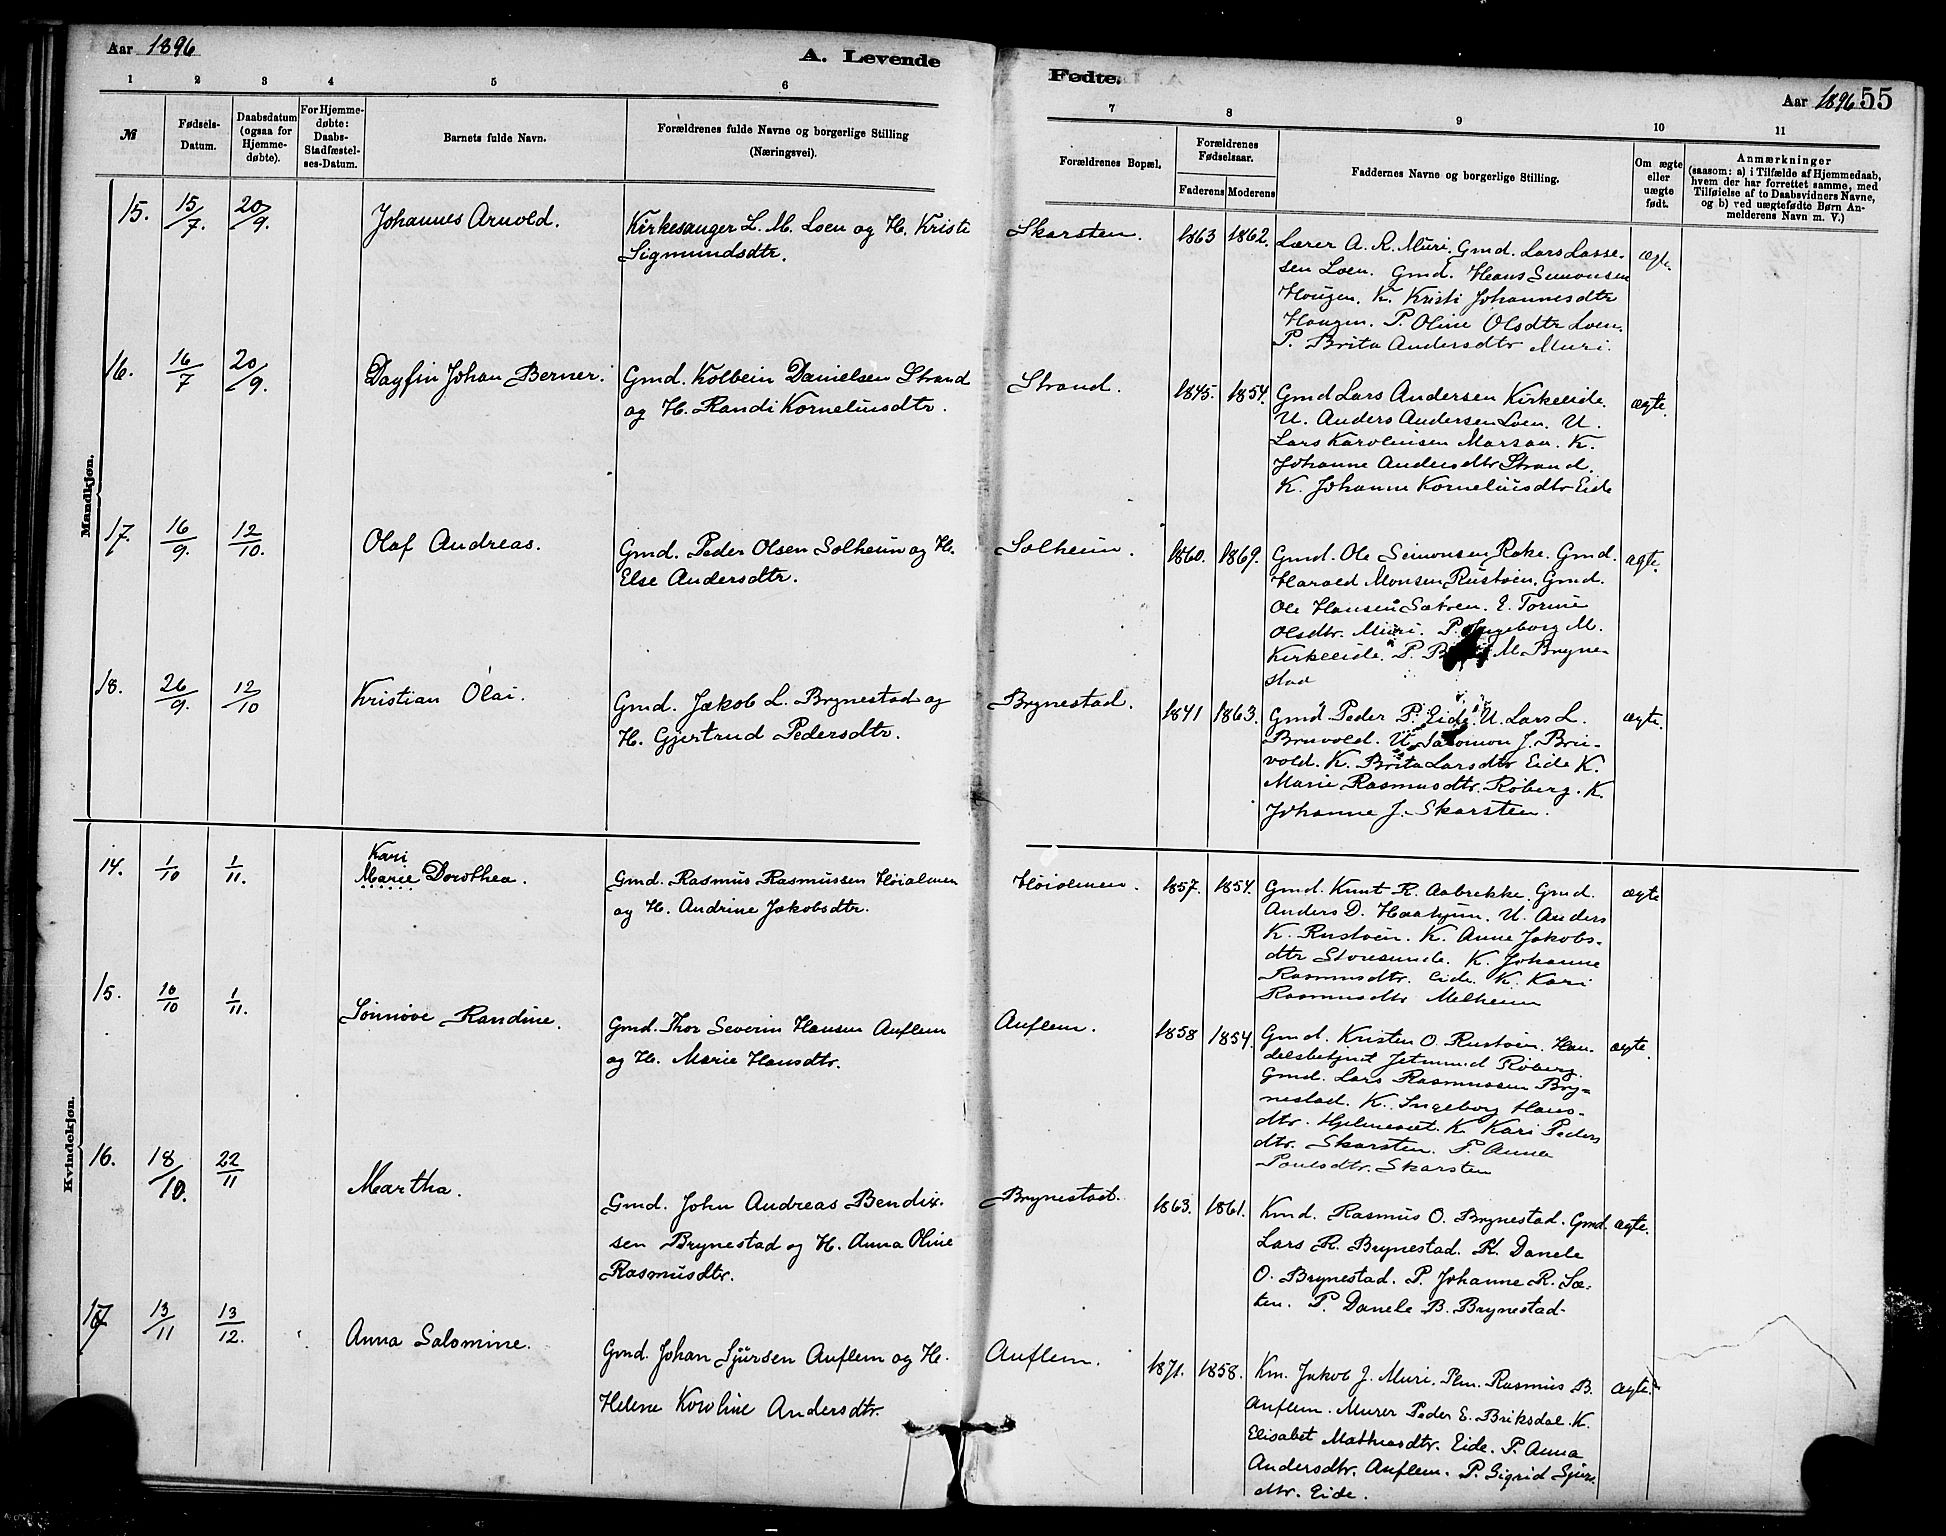 Aar 1896
A. Levende
Fødte.
Aar 1896 55
1 2 3 4 5 6 7 8 9 10 11
№
Fødsels-
Datum.
Daabsdatum
(ogsaa for
Hjemme-
døbte).
For Hjemme-
døbte:
Daabs-
Stadfæstel-
ses-Datum.
Barnets fulde Navn.
Forældrenes fulde Navne og borgerlige Stilling
(Næringsvei).
Forældrenes Bopæl.
Forældrenes
Fødselsaar.
Faderens Moderens
Faddernes Navne og borgerlige Stilling.
Om ægte
eller
uægte
født.
Anmærkninger
(saasom: a) i Tilfælde af Hjemmedaab,
hvem der har forrettet samme, med
Tilføielse af to Daabsvidners Navne,
og b) ved uægtefødte Børn An-
melderens Navn m. V.)
Mandkjøn.
15. 15/7. 20/9. Johannes Arnold.
Kirkesanger L. M. Loen og H. Kristi
Sigmundsdtr.
Skarsten. 1863 1862.
Lærer A. R. Muri, Gmd. Lars Lasse-
sen Loen. Gmd. Hans Simonsen
Hougen. K. Kristi Johannesdtr
Haugen. P. Oline Olsdtr Loen.
P. Brita Andersdtr Muri.
ægte.
16. 16/7 20/9. Dagfin Johan Berner.
Gmd. Kolbein Danielsen Strand
og H. Randi Korneliusdtr.
Strand. 1845. 1854.
Gmd Lars Andersen Kirkeeide.
U. Anders Andersen Loen. U.
Lars Karolinsen Marsaa. K.
Johanne Andersdtr Strand.
K. Johanne Korneliusdtr Eide
ægte.
17. 16/9. 12/10. Olaf Andreas.
Gmd. Peder Olsen Solheim og H.
Else Andersdtr.
Solheim. 1860. 1869.
Gmd. Ole Simonsen Rake. Gmd.
Harald Monsen Rustøen. Gmd.
Ole Hansen Sætren. E. Torine
Olsdtr. Muri. P. Ingeborg M.
Kirkeeide. P. M. Bryne-
stad
ægte.
18. 26/9. 12/10 Kristian Olai.
Gmd. Jakob L. Brynestad og
H. Gjertrud Pedersdtr.
Brynestad. 1841 1863.
Gmd Peder P. Eide. U. Lars L.
Bruvold. U. Salomon J. Bru-
vold. K. Brita Larsdtr Eide K.
Marie Rasmusdtr. Røberg. K.
Johanne J. Skarsten.
ægte.
Kvindekjøn.
14. 1/10 1/11. Kari
Marie Dorothea.
Gmd. Rasmus Rasmussen Høialmen
og H. Andrine Jakobsdtr.
Høialmen. 1857. 1854.
Gmd. Knut R. Aabrekke. Gmd.
Anders D. Haahjem. U. Anders
K. Rustøen. K. Anne Jakobs-
dtr Storesunde. K. Johanne
Rasmusdtr. Eide. K. Kari
Rasmusdtr Melheim
ægte
15. 10/10 1/11. Sønnøve Randine.
Gmd. Thor Severin Hansen Auflem
og H. Marie Hansdtr.
Auflem. 1858 1854.
Gmd. Kristen O. Rustøen. Han-
delsbetjnt Jetmund Røberg.
Gmd. Lars Rasmussen Bry-
nestad. K. Ingeborg Hans-
dtr. Hjelmeset. K Kari Peders
dtr. Skarsten. P. Anna
Poulsdtr. Skarsten
ægte.
16. 18/10. 22/11 Martha.
Gmd. John Andreas Bendix-
sen Brynestad og H. Anna Oline
Rasmusdtr.
Brynestad. 1863. 1861.
Kmd. Rasmus O. Brynestad. Gmd.
Lars R. Brynestad. K. Danele
O. Brynestad. P. Johanne R. Sæ-
ten. P. Danele B. Brynestad.
ægte.
17 13/11 13/12. Anna Salomine.
Gmd. Johan Sjursen Auflem og H.
Helene Karoline Andersdtr.
Auflem. 1871. 1858.
Km. Jakob J. Muri. Plm. Rasmus B.
Auflem. Murer Peder E. Briksdal. K.
Elisabet Mathiasdtr. Eide. P. Anna
Andersdtr. Auflem. P. Sigrid Sjurs
dtr. Eide.
ægte.